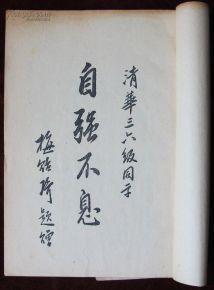 清華三六級同學
自强不息
梅貽琦題贈